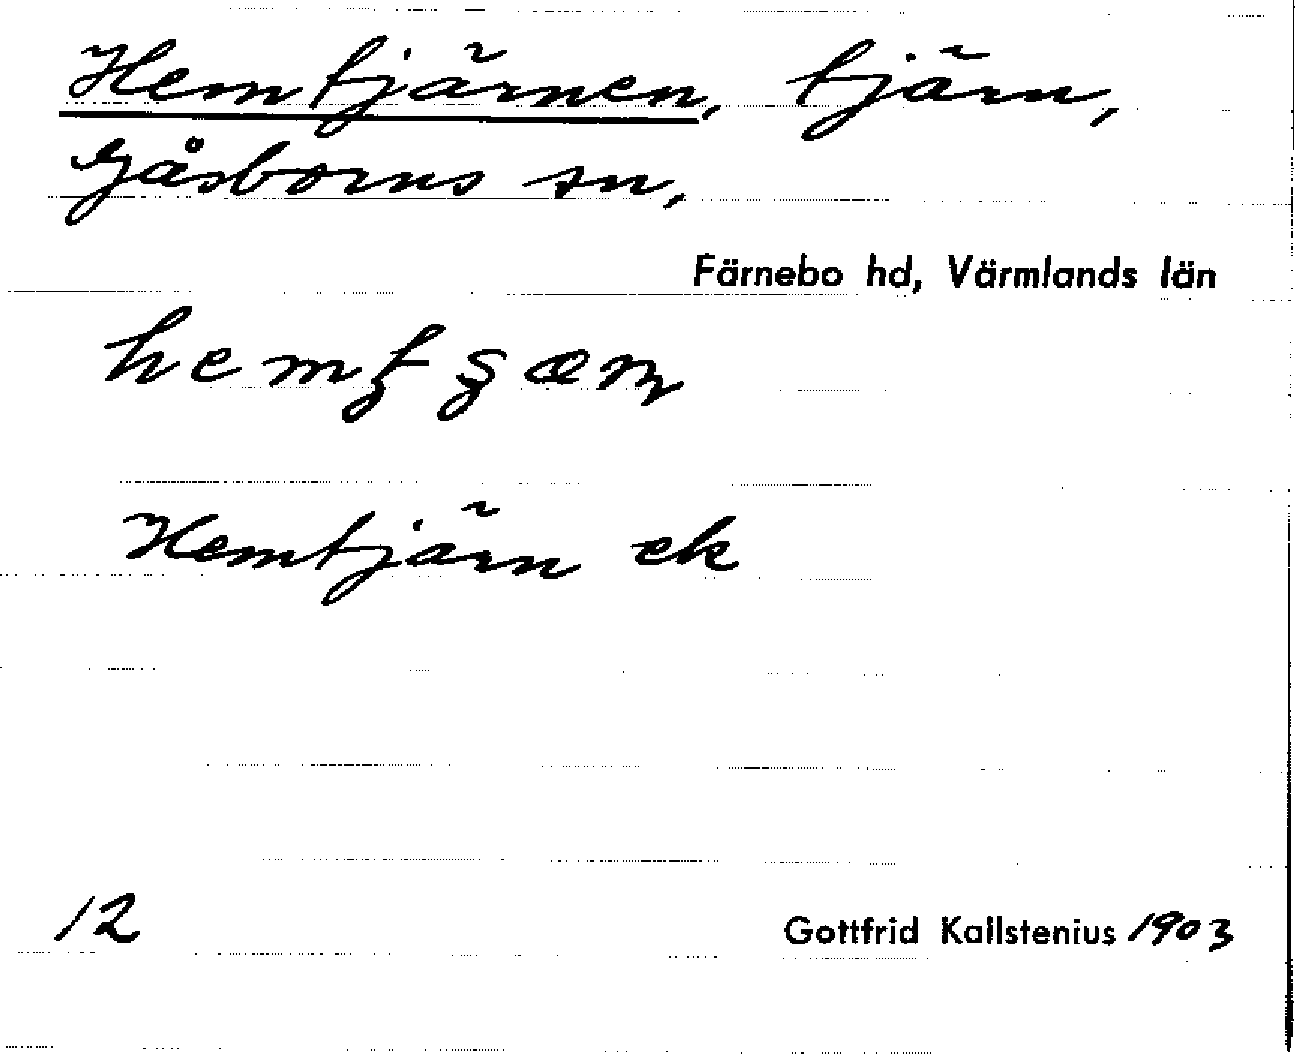 Hemtjärnen, tjärn,
Gåsborns sn,
Färnebo hd, Värmlands län
Hemtjärn ek
12
Gottfrid Kallstenius 1903